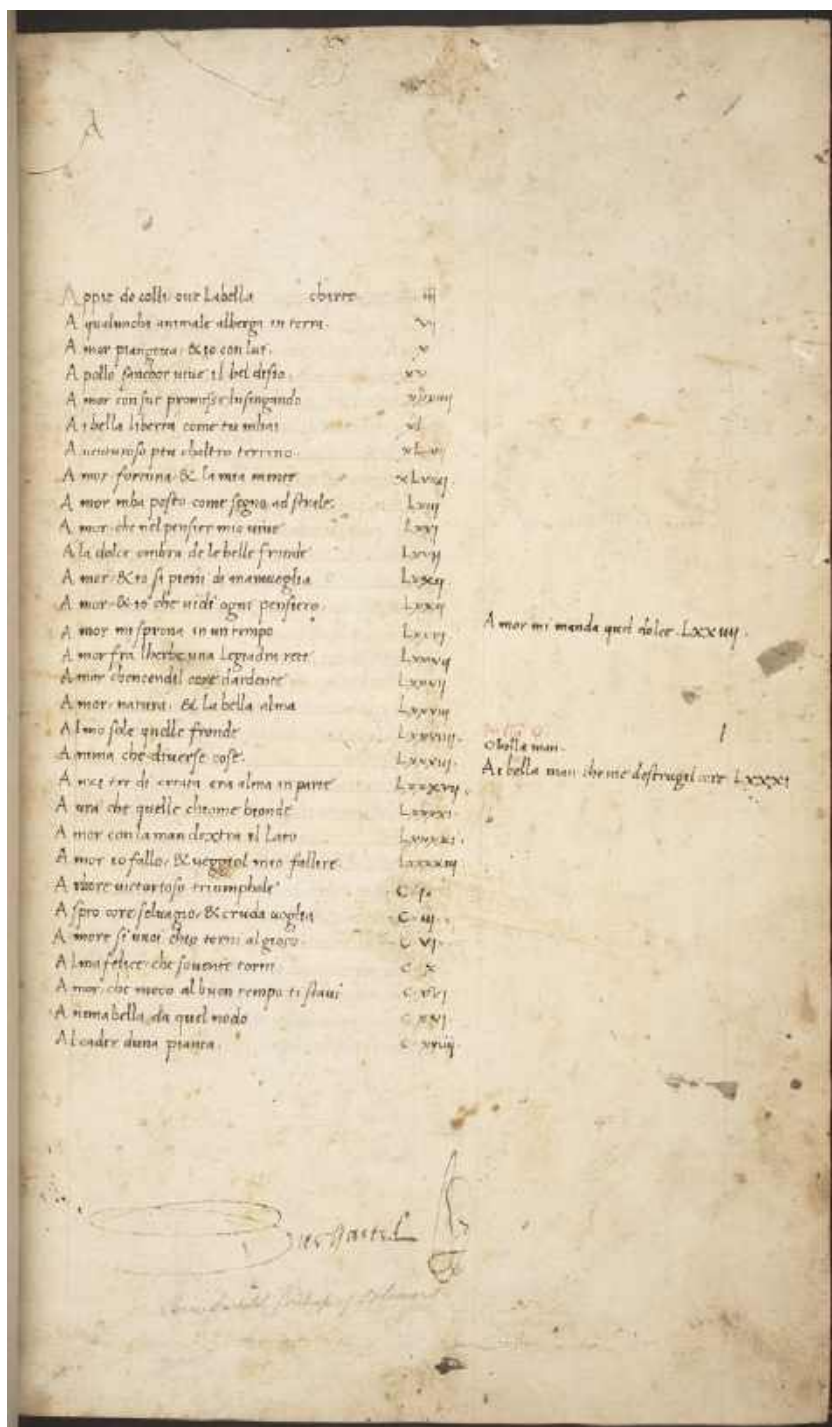 A
A ppie de colli oue Labella charte iiii
A qualuncha animale alberga in terra. vii
A mor piangeua. & io con lui. x
A pollo sanchor uiue il bel desio. xv
A mor con sue promesse lusengando
A i bella liberta come tu mhai xl
A uenturoso piu chaltro terreno.
A mor fortuna & la mia mente
A mor mha posto come segno ad strale.
A mor che nel pensier mio uiue Lxvi
A la dolce ombra de le belle frunde Lxvii
A mor & io si pieni di marauegla Lxxii
A mor & io che uidi ogni pensiero. Lxxii
A mor mi sprona in un tempo Lxxvi
A mor fra lherbe una Legiadra rete Lxxvii
A mor chencendel core dardente Lxxvii
A mor, natura, & la bella alma Lxxviii
A lmo sole quelle fronde Lxxviiii.
A nima che diuerse cose. Lxxxvii.
A ura che quelle chiome bionde Lxxxxi
A mor con la man dextra il Lato Lxxxxi.
A mor io fallo, & ueggiol mio fallire.
A rbore uictorioso triumphale C. i.
A spro core, seluagio, & cruda uoglia C. iii.
A more si uuoi chio torni al giogo C. vi.
A lma felice che souente torni C. x
A mor, che meco al buon tempo ti staui C. xvi
A nima bella da quel nodo C. xxi
A l cader duna pianta. C. xviii.
A mor mi manda quel dolce. LXXIIII.
O bella man.
A i bella man che me destrugel core LXXXI